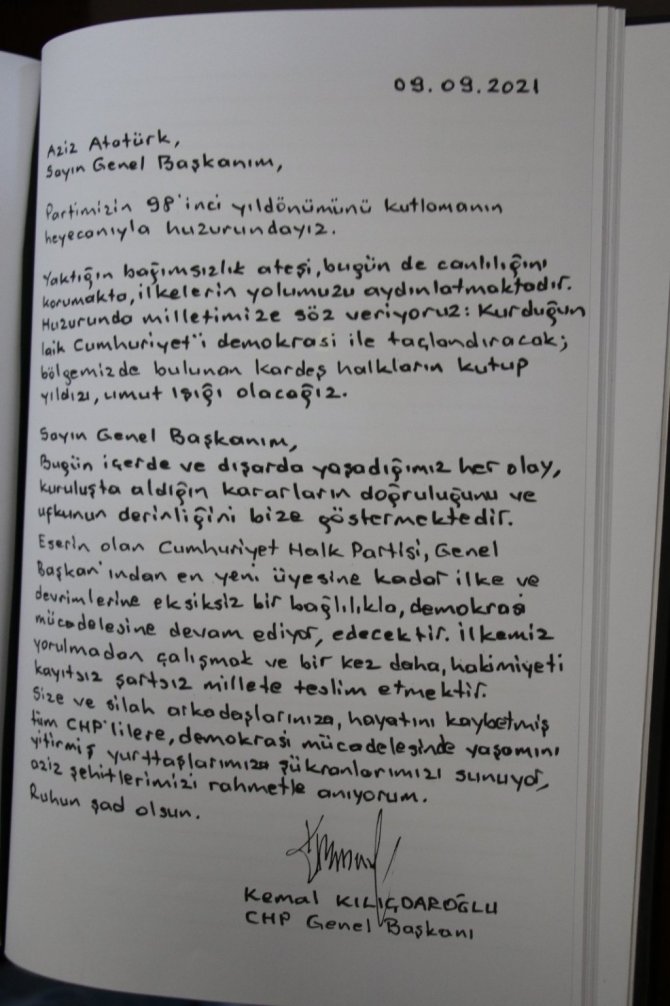 09.09.2021
Aziz Atatürk,
Sayın Genel Başkanım,
Partimizin 98'inci yıldönümünü kutlamanın
heyecanıyla huzurundayız.
Yaktığın bağımsızlık ateşi, bugün de canlılığını
korumakta, ilkelerin yolumuzu aydınlatmaktadır.
Huzurunda milletimize söz veriyoruz: Kurduğun
laik Cumhuriyet'i demokrasi ile taçlandıracak;
bölgemizde bulunan kardeş halkların kutup
yıldızı, umut ışığı olacağız.
Sayın Genel Başkanım,
Bugün içerde ve dışarda yaşadığımız her olay,
kuruluşta aldığın kararların doğruluğunu ve
ufkunun derinliğini bize göstermektedir.
Eserin olan Cumhuriyet Halk Partisi, Genel
Başkan'ından en yeni üyesine kadar ilke ve
devrimlerine eksiksiz bir bağlılıkla, demokrasi
mücadelesine devam ediyor, edecektir. İlkemiz
yorulmadan çalışmak ve bir kez daha, hakimiyeti
kayıtsız şartsız millete teslim etmektir.
Size ve silah arkadaşlarınıza, hayatını kaybetmiş
tüm CHP'lilere, demokrasi mücadelesinde yaşamını
yitirmiş yurttaşlarımıza şükranlarımızı sunuyor,
aziz şehitlerimizi rahmetle anıyorum.
Ruhun şad olsun.
Kemal KILIÇDAROĞLU
CHP Genel Başkanı